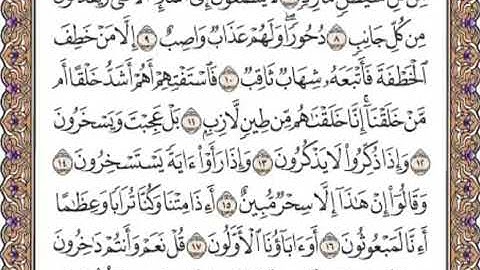 مِّن كُلِّ شَيْطَٰنٍ مَّارِدٍ ٧ لَّا يَسَّمَّعُونَ إِلَى ٱلْمَلَإِ ٱلْأَعْلَىٰ وَيُقْذَفُونَ
مِن كُلِّ جَانِبٍ ٨ دُحُورًا ۖ وَلَهُمْ عَذَابٌ وَاصِبٌ ٩ إِلَّا مَنْ خَطِفَ
ٱلْخَطْفَةَ فَأَتْبَعَهُۥ شِهَابٌ ثَاقِبٌ ١٠ فَٱسْتَفْتِهِمْ أَهُمْ أَشَدُّ خَلْقًا أَم
مَّنْ خَلَقْنَآ ۚ إِنَّا خَلَقْنَٰهُم مِّن طِينٍ لَّازِبٍۭ ١١ بَلْ عَجِبْتَ وَيَسْخَرُونَ
١٢ وَإِذَا ذُكِّرُوا۟ لَا يَذْكُرُونَ ١٣ وَإِذَا رَأَوْا۟ ءَايَةً يَسْتَسْخِرُونَ ١٤
وَقَالُوٓا۟ إِنْ هَٰذَآ إِلَّا سِحْرٌ مُّبِينٌ ١٥ أَءِذَا مِتْنَا وَكُنَّا تُرَابًا وَعِظَٰمًا
أَءِنَّا لَمَبْعُوثُونَ ١٦ أَوَءَابَآؤُنَا ٱلْأَوَّلُونَ ١٧ قُلْ نَعَمْ وَأَنتُمْ دَٰخِرُونَ